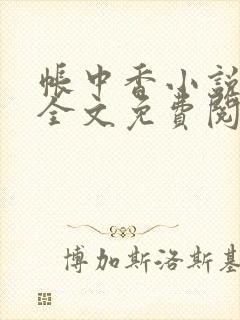 帳中香小說
全文免費閱
博加斯洛斯基